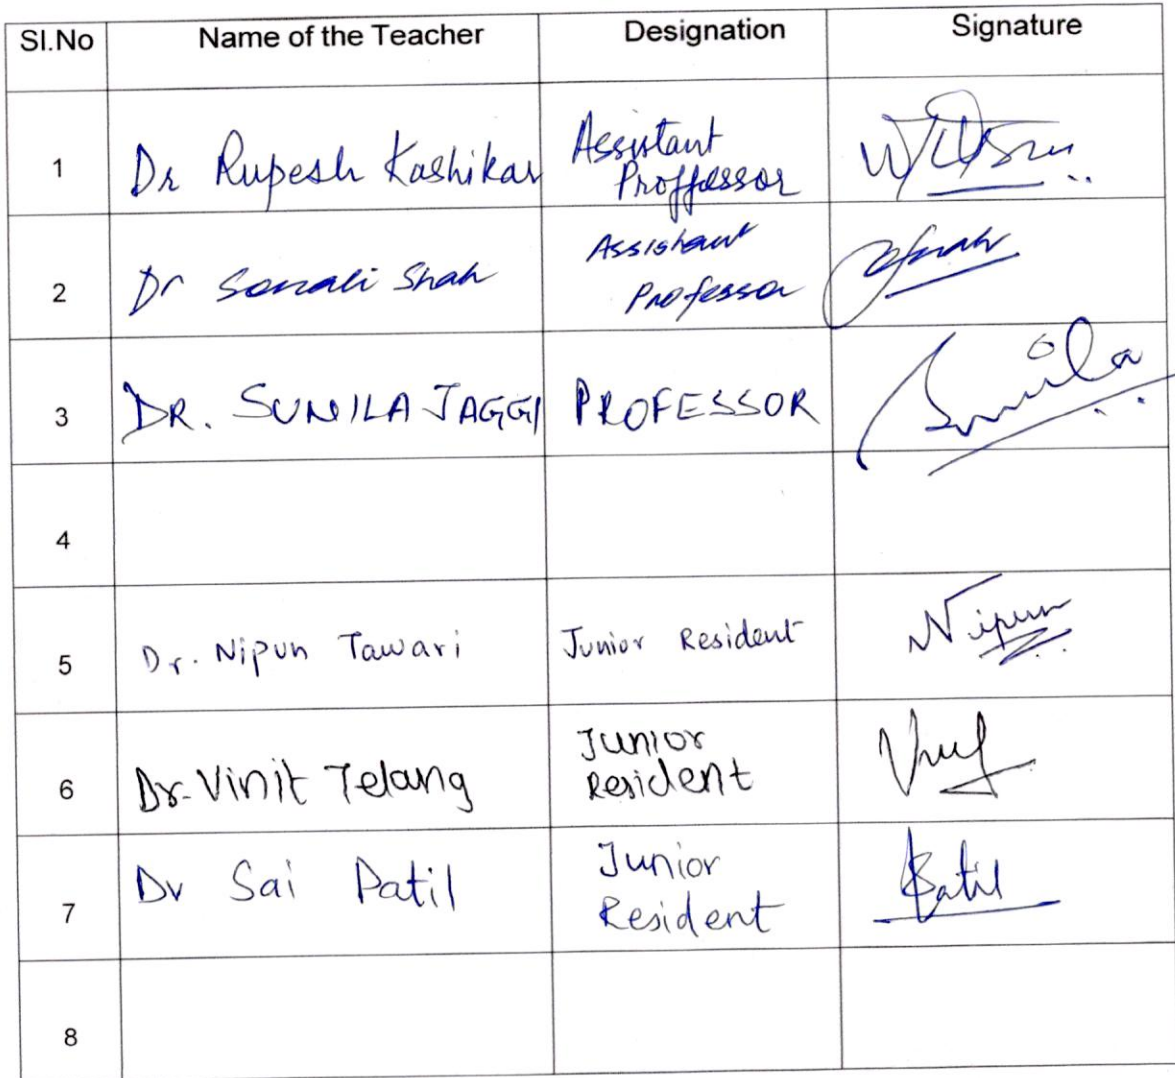 Sl.No Name of the Teacher Designation Signature
1 Dr Rupesh Kashikar Assistant
Proffessor
2 Dr Sonali Shah Assistant
Professor
3 DR. SUNILA JAGGI PROFESSOR Sunila
4
5 Dr. Nipun Tawari Junior Resident Nipun
6 Dr. Vinit Telang Junior
Resident
7 Dr Sai Patil Junior
Resident Patil
8